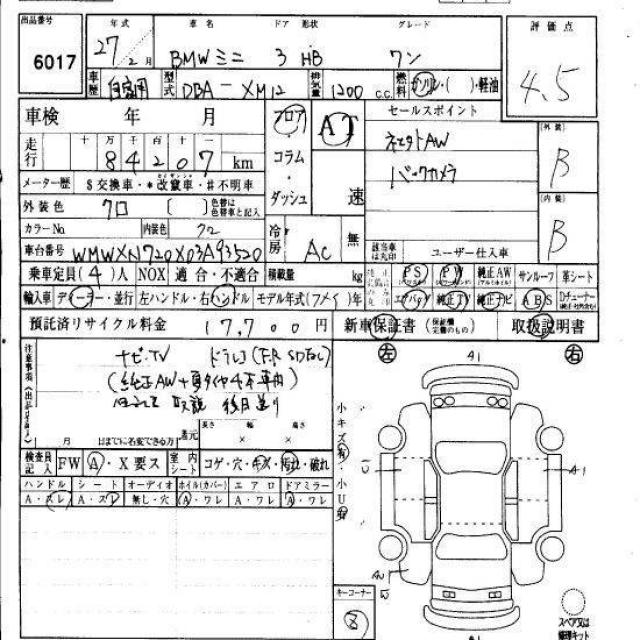 出品番号 年式 車名 ドア 形状 グレード 評価点
6017 27 2月 BMWミニ 3 HB ワン 4.5
車歴 自家用 型式 DBA-XM12 排気量 1200 c.c. 燃料 ガソリン・( )・軽油
車検 年 月 フロア AT セールスポイント
走行 十 万 千 百 十 一
84207 km コラム・ダッシュ 速 社外AW
バックカメラ
(外装) B
メーター歴 $交換車・*改竄車・#不明車
外装色 クロ [ ] 色替は色替車と記入 (内装) B
カラーNo. 内装色 クロ 冷房 AC 無
車台番号 WMWXN720X03A93520 該当車は丸印 ユーザー仕入車
乗車定員(4)人 NOX 適合・不適合 積載量 kg PS PW 純正AW サンルーフ 革シート
輸入車 ディーラー・並行 左ハンドル・右ハンドル モデル年式(フメイ)年 エアバッグ 純正TV 純正ナビ ABS
預託済リサイクル料金 17,700円 新車保証書 取扱説明書
注意事項(出品店より) ナビ・TV ドラレコ(F,R SD欠し) 左 A1 右
(純正AW+夏タイヤ4本車内)
保証書 取説 後日送り
月 日までに名変できる方 還元 長さ × 幅 × 高さ 小キズ有・小U有
検査員記入 FW A・X要ス 室内シート コゲ・穴・キズ・汚れ・破れ U1 A1
ハンドル シート オーディオ ホイル(カバー) エアロ ドアミラー
A・スレ A・スレ 無し・穴 A・ワレ A・ワレ A・ワレ
キーコーナー A1 スペア又は修理キット